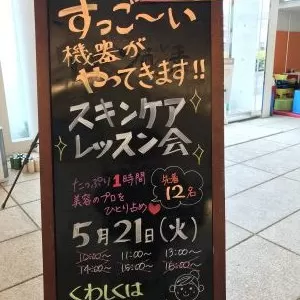 すっご〜い
機器が
やってきます!!
スキンケア
レッスン会
たっぷり1時間
美容のプロを
ひとり占め♥
先着
12名
5月21日(火)
10:00〜 11:00〜 13:00〜
14:00〜 15:00〜 16:00〜
くわしくは